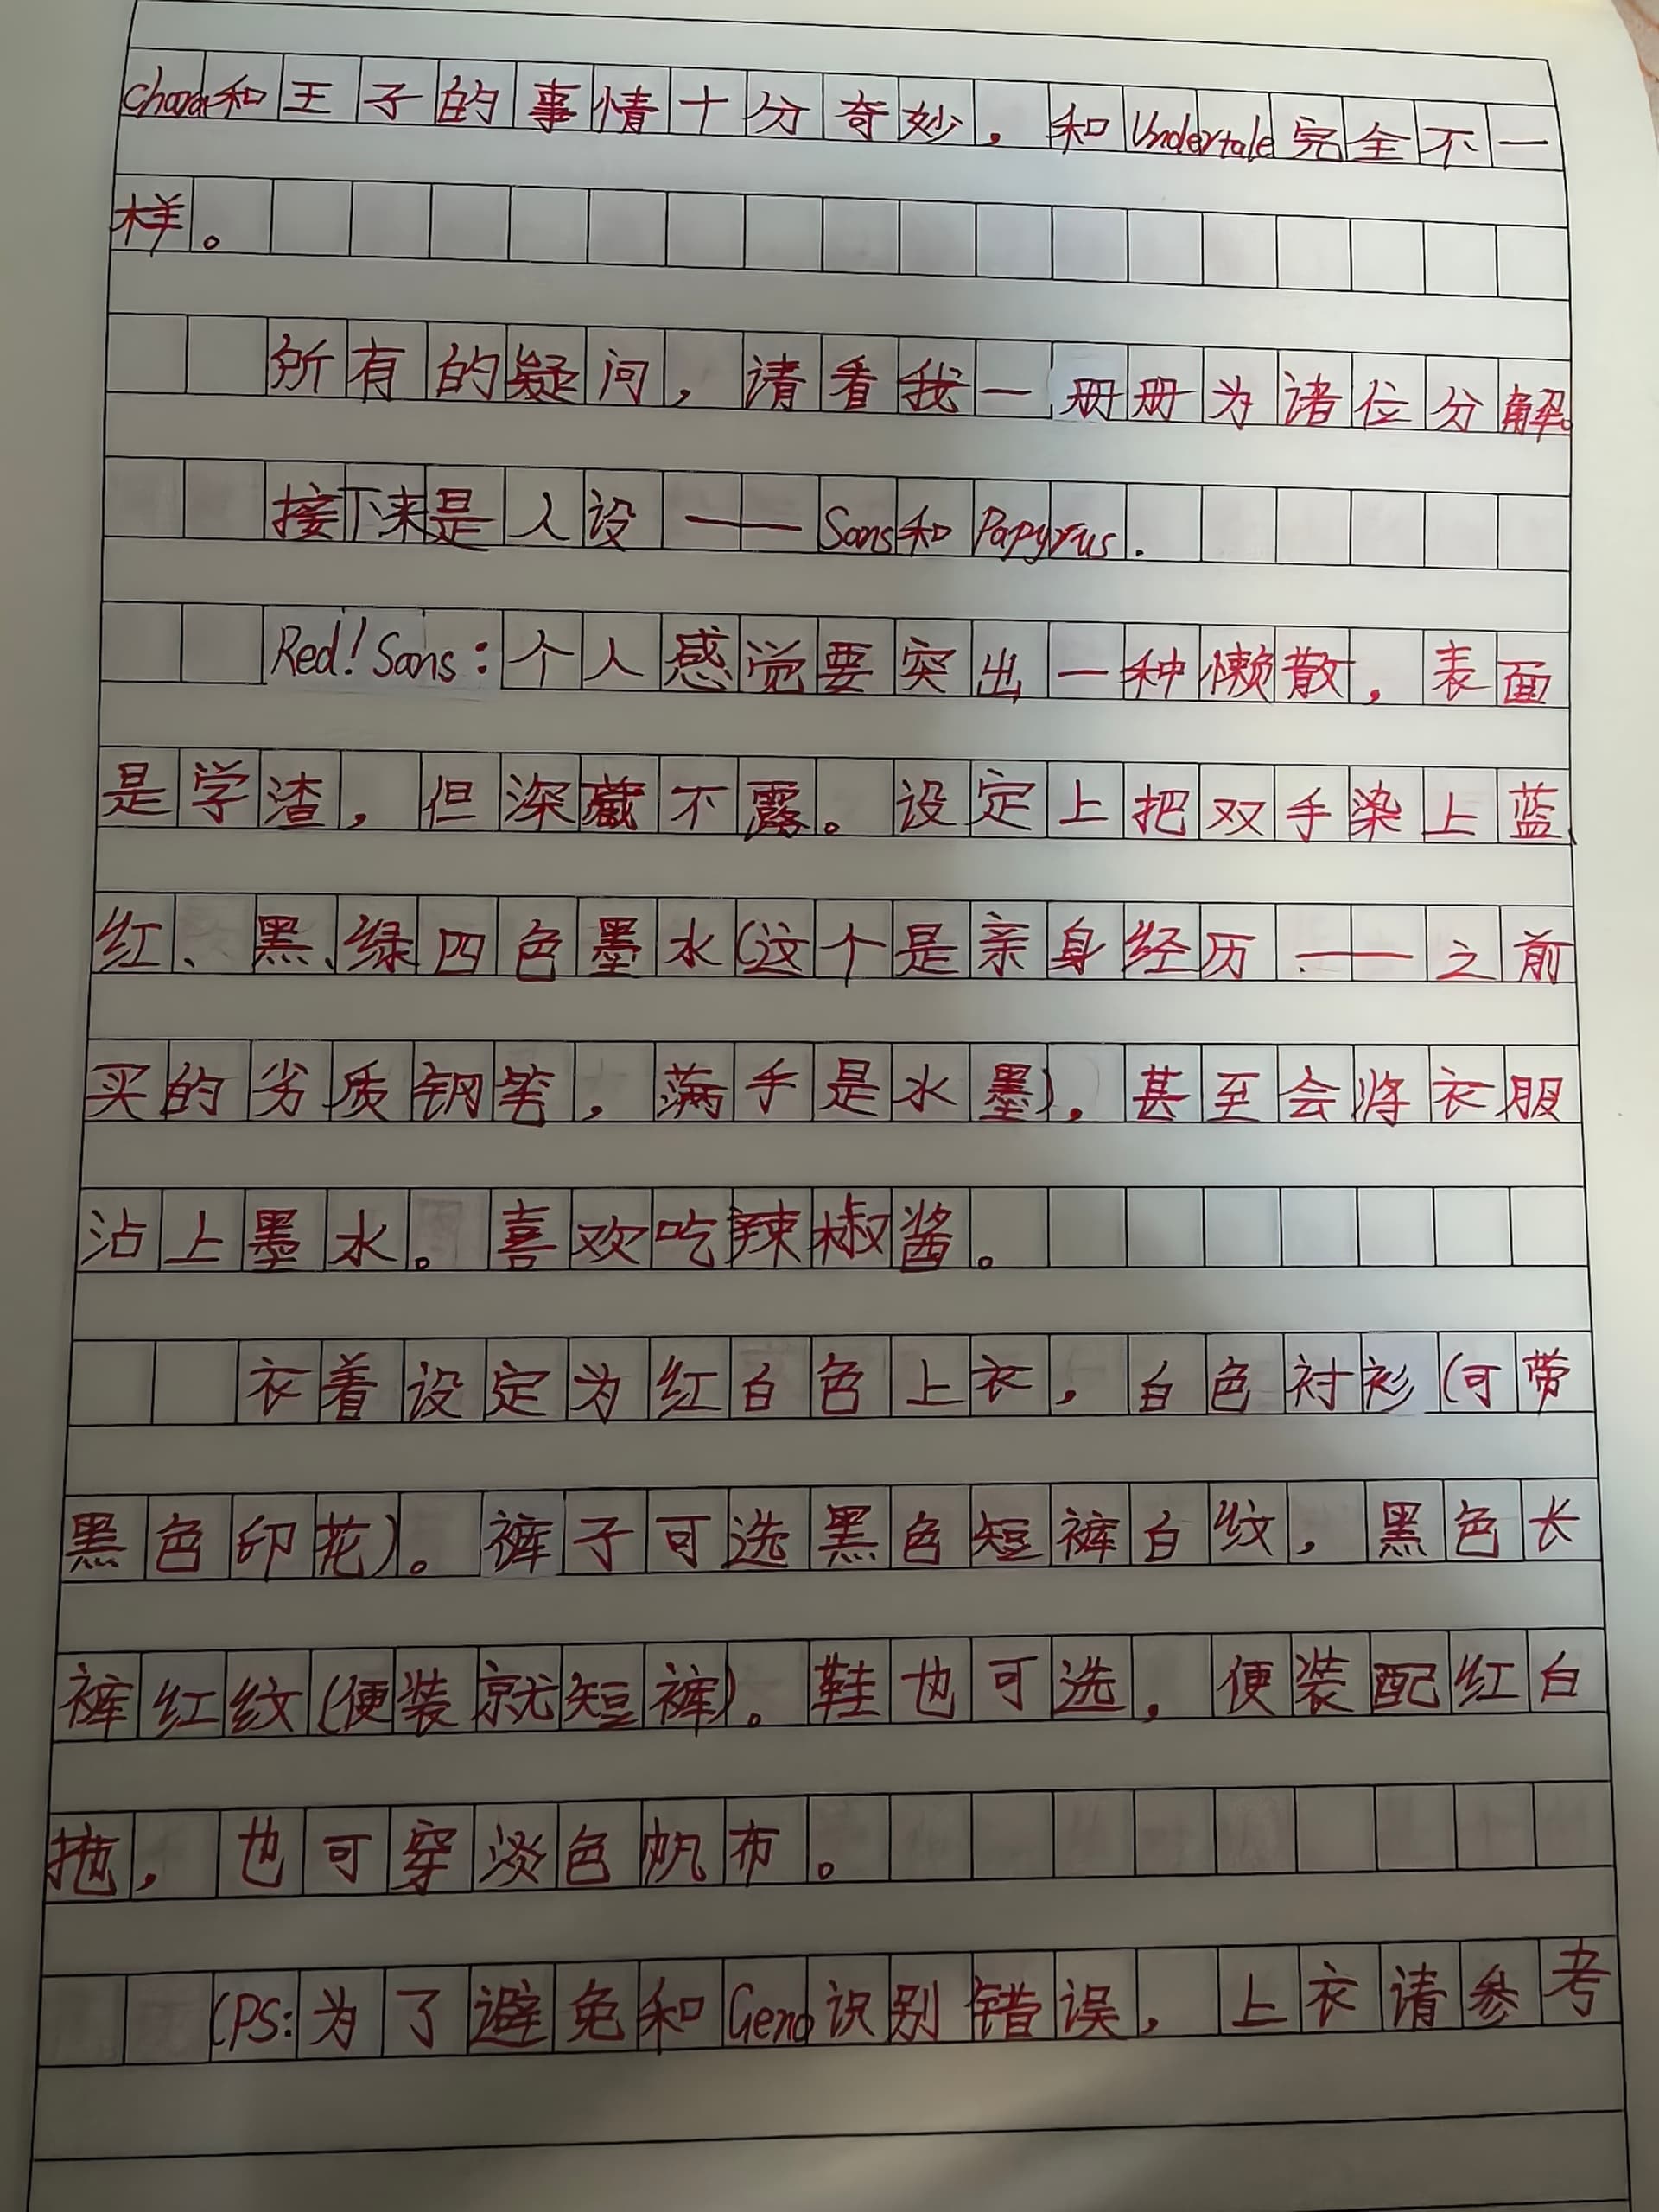 Chara和王子的事情十分奇妙，和Undertale完全不一
样。
所有的疑问，请看我一册册为诸位分解。
接下来是人设——Sans和Papyrus.
Red!Sans：个人感觉要突出一种懒散，表面
是学渣，但深藏不露。设定上把双手染上蓝、
红、黑、绿四色墨水(这个是亲身经历——之前
买的劣质钢笔，满手是水墨)，甚至会将衣服
沾上墨水。喜欢吃辣椒酱。
衣着设定为红白色上衣，白色衬衫(可带
黑色印花)。裤子可选黑色短裤白纹，黑色长
裤红纹(便装就短裤)。鞋也可选，便装配红白
拖，也可穿淡色帆布。
(PS:为了避免和Geno识别错误，上衣请参考